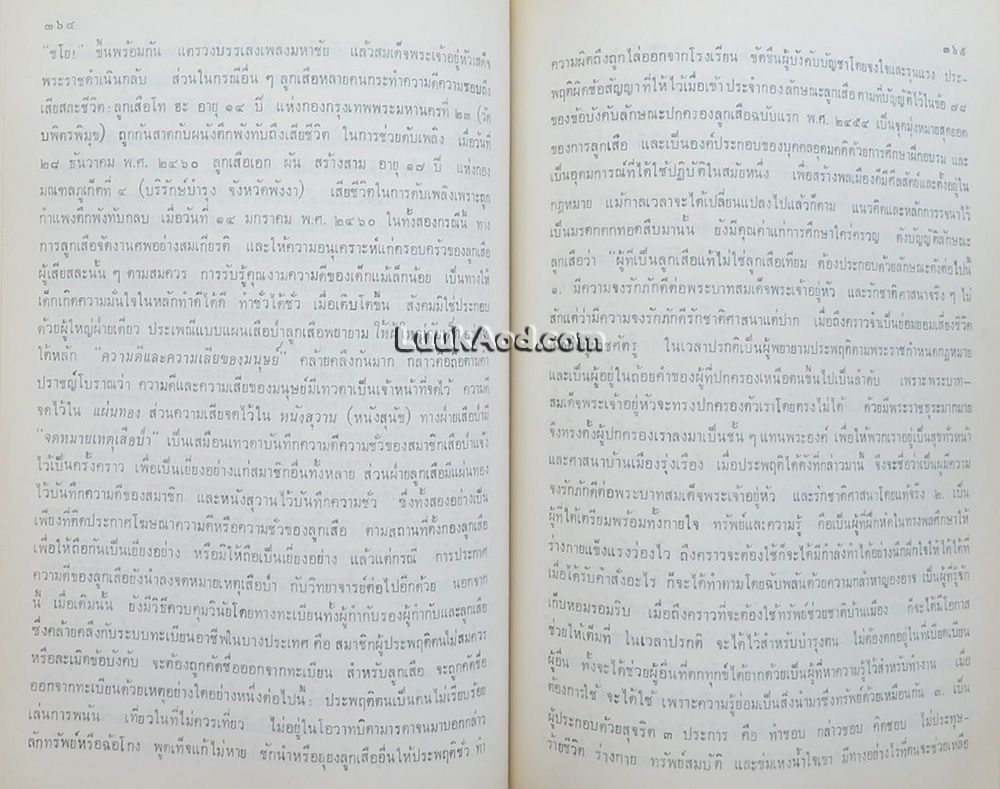 ๓๖๔
"ชโย!" ขึ้นพร้อมกัน แตรวงบรรเลงเพลงมหาชัย แล้วสมเด็จพระเจ้าอยู่หัวเสด็จ
พระราชดำเนินกลับ ส่วนในกรณีอื่น ๆ ลูกเสือหลายคนกระทำความดีความชอบถึง
เสียสละชีวิต: ลูกเสือโท ฮะ อายุ ๑๔ ปี แห่งกองกรุงเทพพระมหานครที่ ๒๓ (วัด
บพิตรพิมุข) ถูกกันสาดกับผนังตึกพังทับถึงเสียชีวิต ในการช่วยดับเพลิง เมื่อวันที่
๒๘ ธันวาคม พ.ศ. ๒๔๖๐ ลูกเสือเอก ผัน สร้างสาม อายุ ๑๗ ปี แห่งกอง
มณฑลภูเก็ตที่ ๔ (บริรักษ์บำรุง จังหวัดพังงา) เสียชีวิตในการดับเพลิงเพราะถูก
กำแพงตึกพังทับกลบ เมื่อวันที่ ๑๔ มกราคม พ.ศ. ๒๔๖๐ ในทั้งสองกรณีนี้ ทาง
การลูกเสือจัดงานศพอย่างสมเกียรติ และให้ความอนุเคราะห์แก่ครอบครัวของลูกเสือ
ผู้เสียสละนั้น ๆ ตามสมควร การรับรู้คุณงามความดีของเด็กแม้เล็กน้อย เป็นทางให้
เด็กเกิดความมั่นใจในหลักทำดีได้ดี ทำชั่วได้ชั่ว เมื่อเติบโตขึ้น สังคมมิใช่ประกอบ
ด้วยผู้ใหญ่ฝ่ายเดียว ประเพณีแบบแผนเสือป่าลูกเสือพยายาม
LuukAod.com
ได้หลัก "ความดีและความเสียของมนุษย์" คล้ายคลึงกันมาก กล่าวคือถือตามคำ
ปราชญ์โบราณว่า ความดีและความเสียของมนุษย์มีเทวดาเป็นเจ้าหน้าที่จดไว้ ความดี
จดไว้ใน แผ่นทอง ส่วนความเสียจดไว้ใน หนังสุวาน (หนังสุนัข) ทางฝ่ายเสือป่ามี
"จดหมายเหตุเสือป่า" เป็นเสมือนเทวดาบันทึกความดีความชั่วของสมาชิกเสือป่าแจ้ง
ไว้เป็นครั้งคราว เพื่อเป็นเยี่ยงอย่างแก่สมาชิกอื่นทั้งหลาย ส่วนฝ่ายลูกเสือมีแผ่นทอง
ไว้บันทึกความดีของสมาชิก และหนังสุวานไว้บันทึกความชั่ว ซึ่งทั้งสองอย่างเป็น
เพียงที่ติดประกาศโฆษณาความดีหรือความชั่วของลูกเสือ ตามสถานที่ตั้งกองลูกเสือ
เพื่อให้ถือกันเป็นเยี่ยงอย่าง หรือมิให้ถือเป็นเยี่ยงอย่าง แล้วแต่กรณี การประกาศ
ความดีของลูกเสือยังนำลงจดหมายเหตุเสือป่า กับวิทยาจารย์ต่อไปอีกด้วย นอกจาก
นี้ เมื่อเดิมนั้น ยังมีวิธีควบคุมวินัยโดยทางทะเบียนทั้งผู้กำกับรองผู้กำกับและลูกเสือ
ซึ่งคล้ายคลึงกับระบบทะเบียนอาชีพในบางประเทศ คือ สมาชิกผู้ประพฤติตนไม่สมควร
หรือละเมิดข้อบังคับ จะต้องถูกคัดชื่อออกจากทะเบียน สำหรับลูกเสือ จะถูกคัดชื่อ
ออกจากทะเบียนด้วยเหตุอย่างใดอย่างหนึ่งต่อไปนี้: ประพฤติตนเป็นคนไม่เรียบร้อย
เล่นการพนัน เที่ยวในที่ไม่ควรเที่ยว ไม่อยู่ในโอวาทบิดามารดาจนมาบอกกล่าว
ลักทรัพย์หรือฉ้อโกง พูดเท็จแก้ไม่หาย ชักนำหรือยุยงลูกเสืออื่นให้ประพฤติชั่ว ทำ
๓๖๕
ความผิดถึงถูกไล่ออกจากโรงเรียน ขัดขืนผู้บังคับบัญชาโดยจงใจและรุนแรง ประ-
พฤติผิดข้อสัญญาที่ให้ไว้เมื่อเข้าประจำกอง ลักษณะลูกเสือตามที่บัญญัติไว้ในข้อ ๗๘
ของข้อบังคับลักษณะปกครองลูกเสือฉบับแรก พ.ศ. ๒๔๕๔ เป็นจุดมุ่งหมายสุดยอด
ของการลูกเสือ และเป็นองค์ประกอบของบุคคลอุดมคติด้วยการศึกษาฝึกอบรม และ
เป็นอุดมการณ์ที่ได้ใช้ปฏิบัติในสมัยหนึ่ง เพื่อสร้างพลเมืองดีมีศีลสัตย์และตั้งอยู่ใน
กฎหมาย แม้กาลเวลาจะได้เปลี่ยนแปลงไปแล้วก็ตาม แนวคิดและหลักการรจนาไว้
เป็นมรดกตกทอดสืบมานั้น ยังมีคุณค่าแก่การศึกษาใคร่ครวญ ดังบัญญัติลักษณะ
ลูกเสือว่า "ผู้ที่เป็นลูกเสือแท้ไม่ใช่ลูกเสือเทียม ต้องประกอบด้วยลักษณะดังต่อไปนี้
๑. มีความจงรักภักดีต่อพระบาทสมเด็จพระเจ้าอยู่หัว และรักชาติศาสนาจริง ๆ ไม่
สักแต่ว่ามีความจงรักภักดีรักชาติศาสนาแต่ปาก เมื่อถึงคราวจำเป็นย่อมยอมเสี่ยงชีวิต
ศัตรู ในเวลาปรกติเป็นผู้พยายามประพฤติตามพระราชกำหนดกฎหมาย
และเป็นผู้อยู่ในถ้อยคำของผู้ที่ปกครองเหนือตนขึ้นไปเป็นลำดับ เพราะพระบาท-
สมเด็จพระเจ้าอยู่หัวจะทรงปกครองตัวเราโดยตรงไม่ได้ ด้วยมีพระราชธุระมากมาย
จึงทรงตั้งผู้ปกครองเราลงมาเป็นชั้น ๆ แทนพระองค์ เพื่อให้พวกเราอยู่เป็นสุขทั่วหน้า
และศาสนาบ้านเมืองรุ่งเรือง เมื่อประพฤติได้ดังที่กล่าวมานี้ จึงจะชื่อว่าเป็นผู้มีความ
จงรักภักดีต่อพระบาทสมเด็จพระเจ้าอยู่หัว และรักชาติศาสนาโดยแท้จริง ๒. เป็น
ผู้ที่ได้เตรียมพร้อมทั้งกายใจ ทรัพย์และความรู้ คือเป็นผู้ที่ฝึกหัดในทางพลศึกษาให้
ร่างกายแข็งแรงว่องไว ถึงคราวจะต้องใช้ก็จะได้มีกำลังทำได้อย่างนึกฝึกใจให้ได้ได้ที่
เมื่อได้รับคำสั่งอะไร ก็จะได้ทำตามโดยฉับพลันด้วยความกล้าหาญองอาจ เป็นผู้ที่รู้จัก
เก็บหอมรอมริบ เมื่อถึงคราวที่จะต้องใช้ทรัพย์ช่วยชาติบ้านเมือง ก็จะได้มีโอกาส
ช่วยให้เต็มที่ ในเวลาปรกติ จะได้ไว้สำหรับบำรุงตน ไม่ต้องตกอยู่ในที่เบียดเบียน
ผู้อื่น ทั้งจะได้ช่วยผู้อื่นที่ตกทุกข์ได้ยากด้วยเป็นผู้ที่หาความรู้ไว้สำหรับทำงาน เมื่อ
ต้องการใช้ จะได้ใช้ เพราะความรู้ย่อมเป็นสิ่งนำมาซึ่งทรัพย์ด้วยเหมือนกัน ๓. เป็น
ผู้ประกอบด้วยสุจริต ๓ ประการ คือ ทำชอบ กล่าวชอบ คิดชอบ ไม่ประทุษ-
ร้ายชีวิต ร่างกาย ทรัพย์สมบัติ และข่มเหงน้ำใจเขา มีทางอย่างไรที่ตนจะช่วยเหลือ